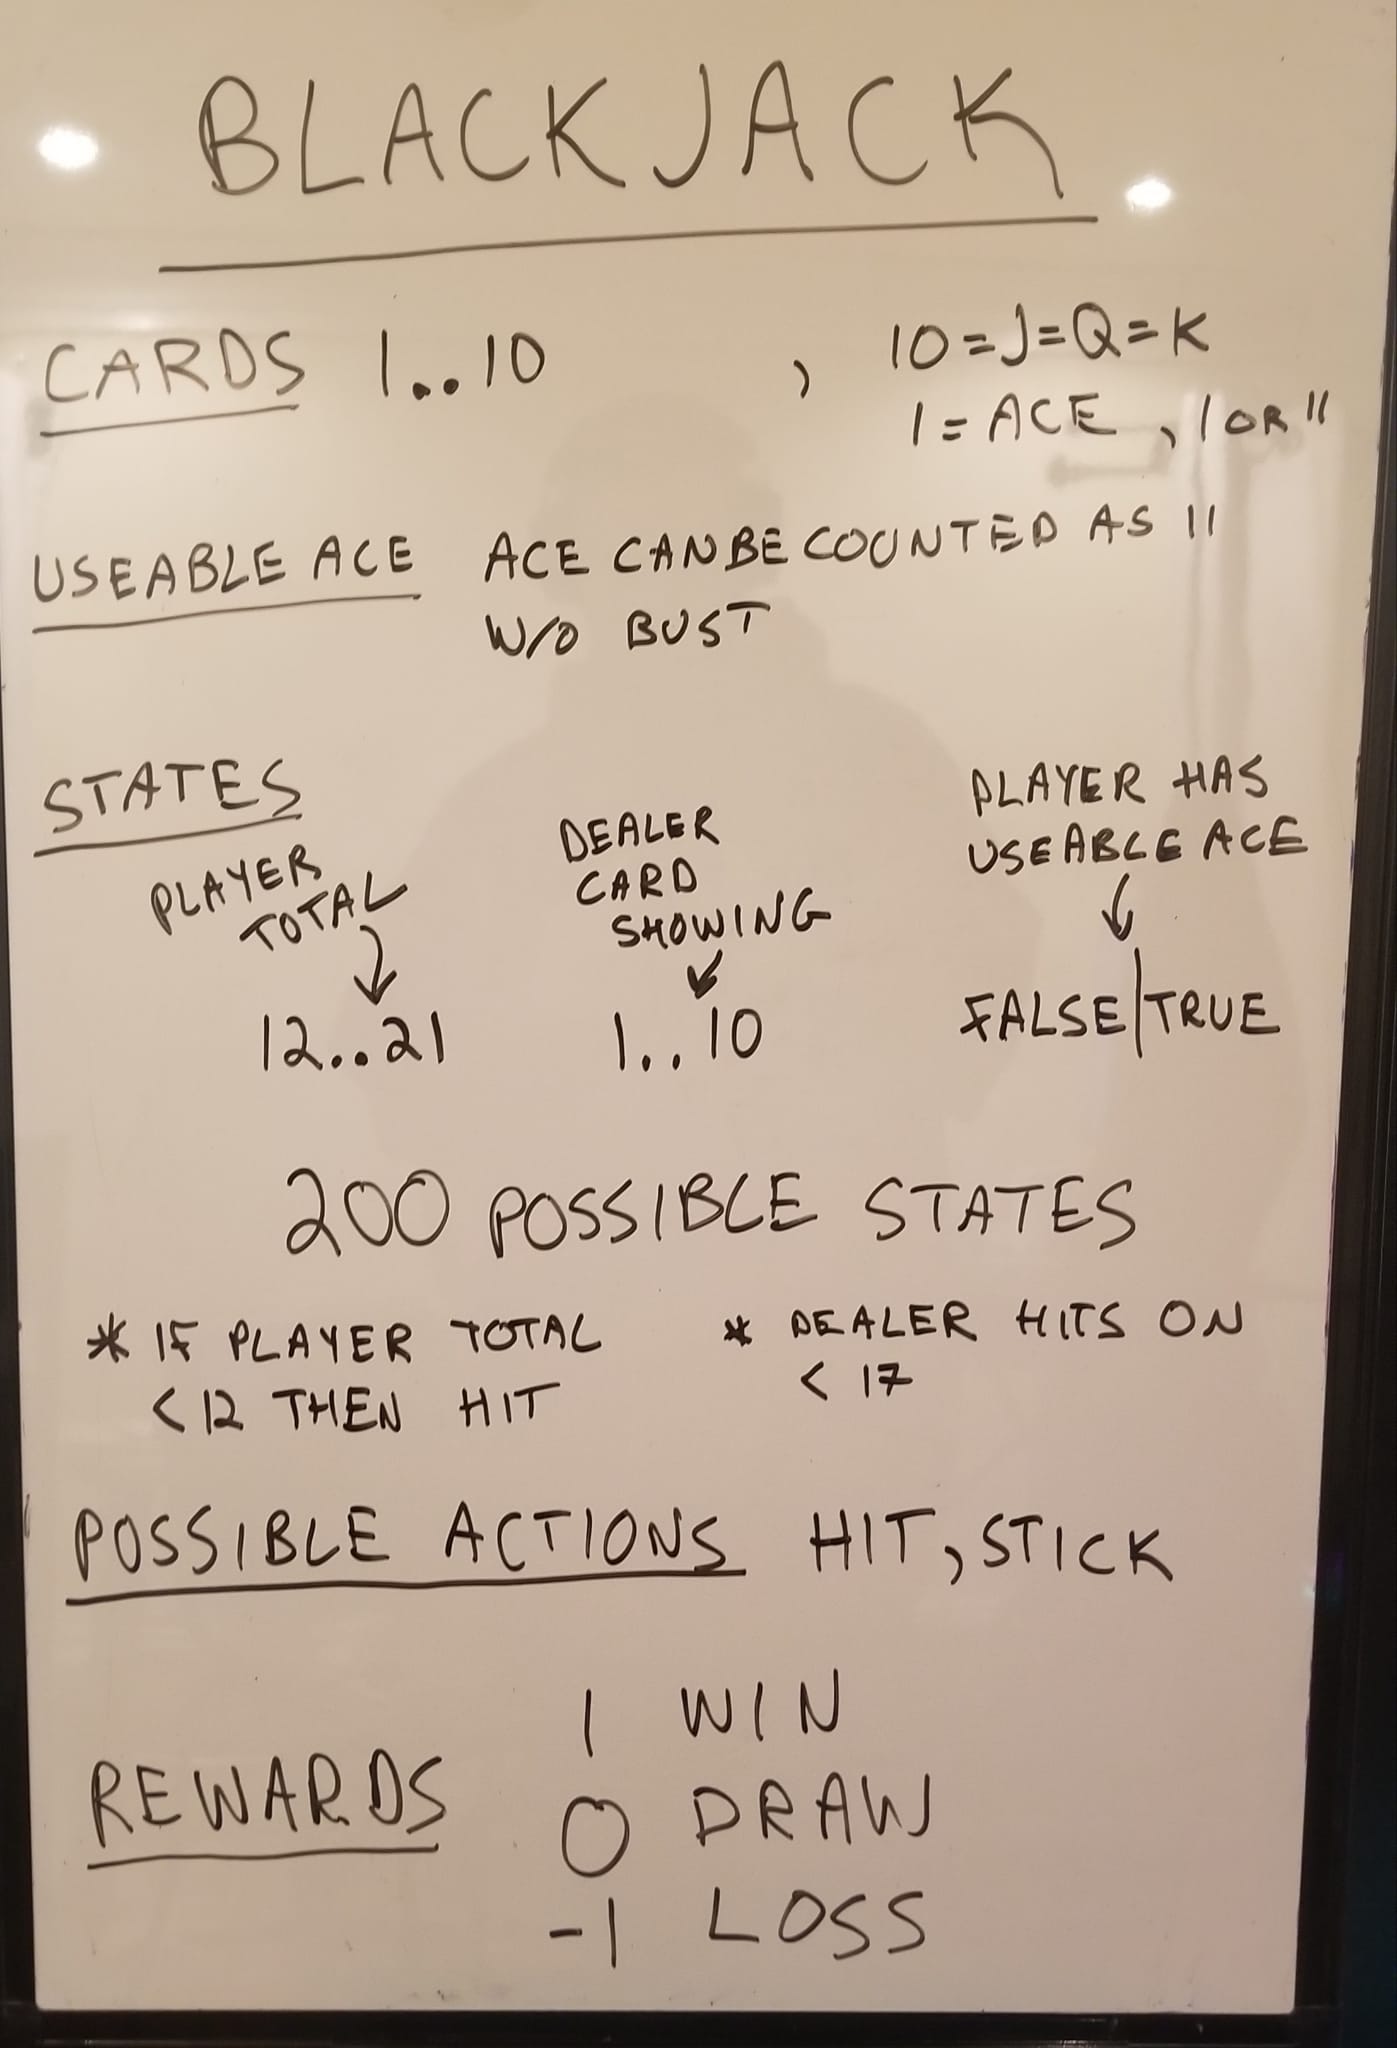 BLACKJACK
CARDS 1..10 , 10=J=Q=K
1=ACE, 1 OR 11
USEABLE ACE ACE CAN BE COUNTED AS 11
W/O BUST
STATES
PLAYER
TOTAL
12..21
DEALER
CARD
SHOWING
1..10
PLAYER HAS
USEABLE ACE
FALSE|TRUE
200 POSSIBLE STATES
* IF PLAYER TOTAL
<12 THEN HIT
* DEALER HITS ON
<17
POSSIBLE ACTIONS HIT, STICK
REWARDS
1 WIN
0 DRAW
-1 LOSS